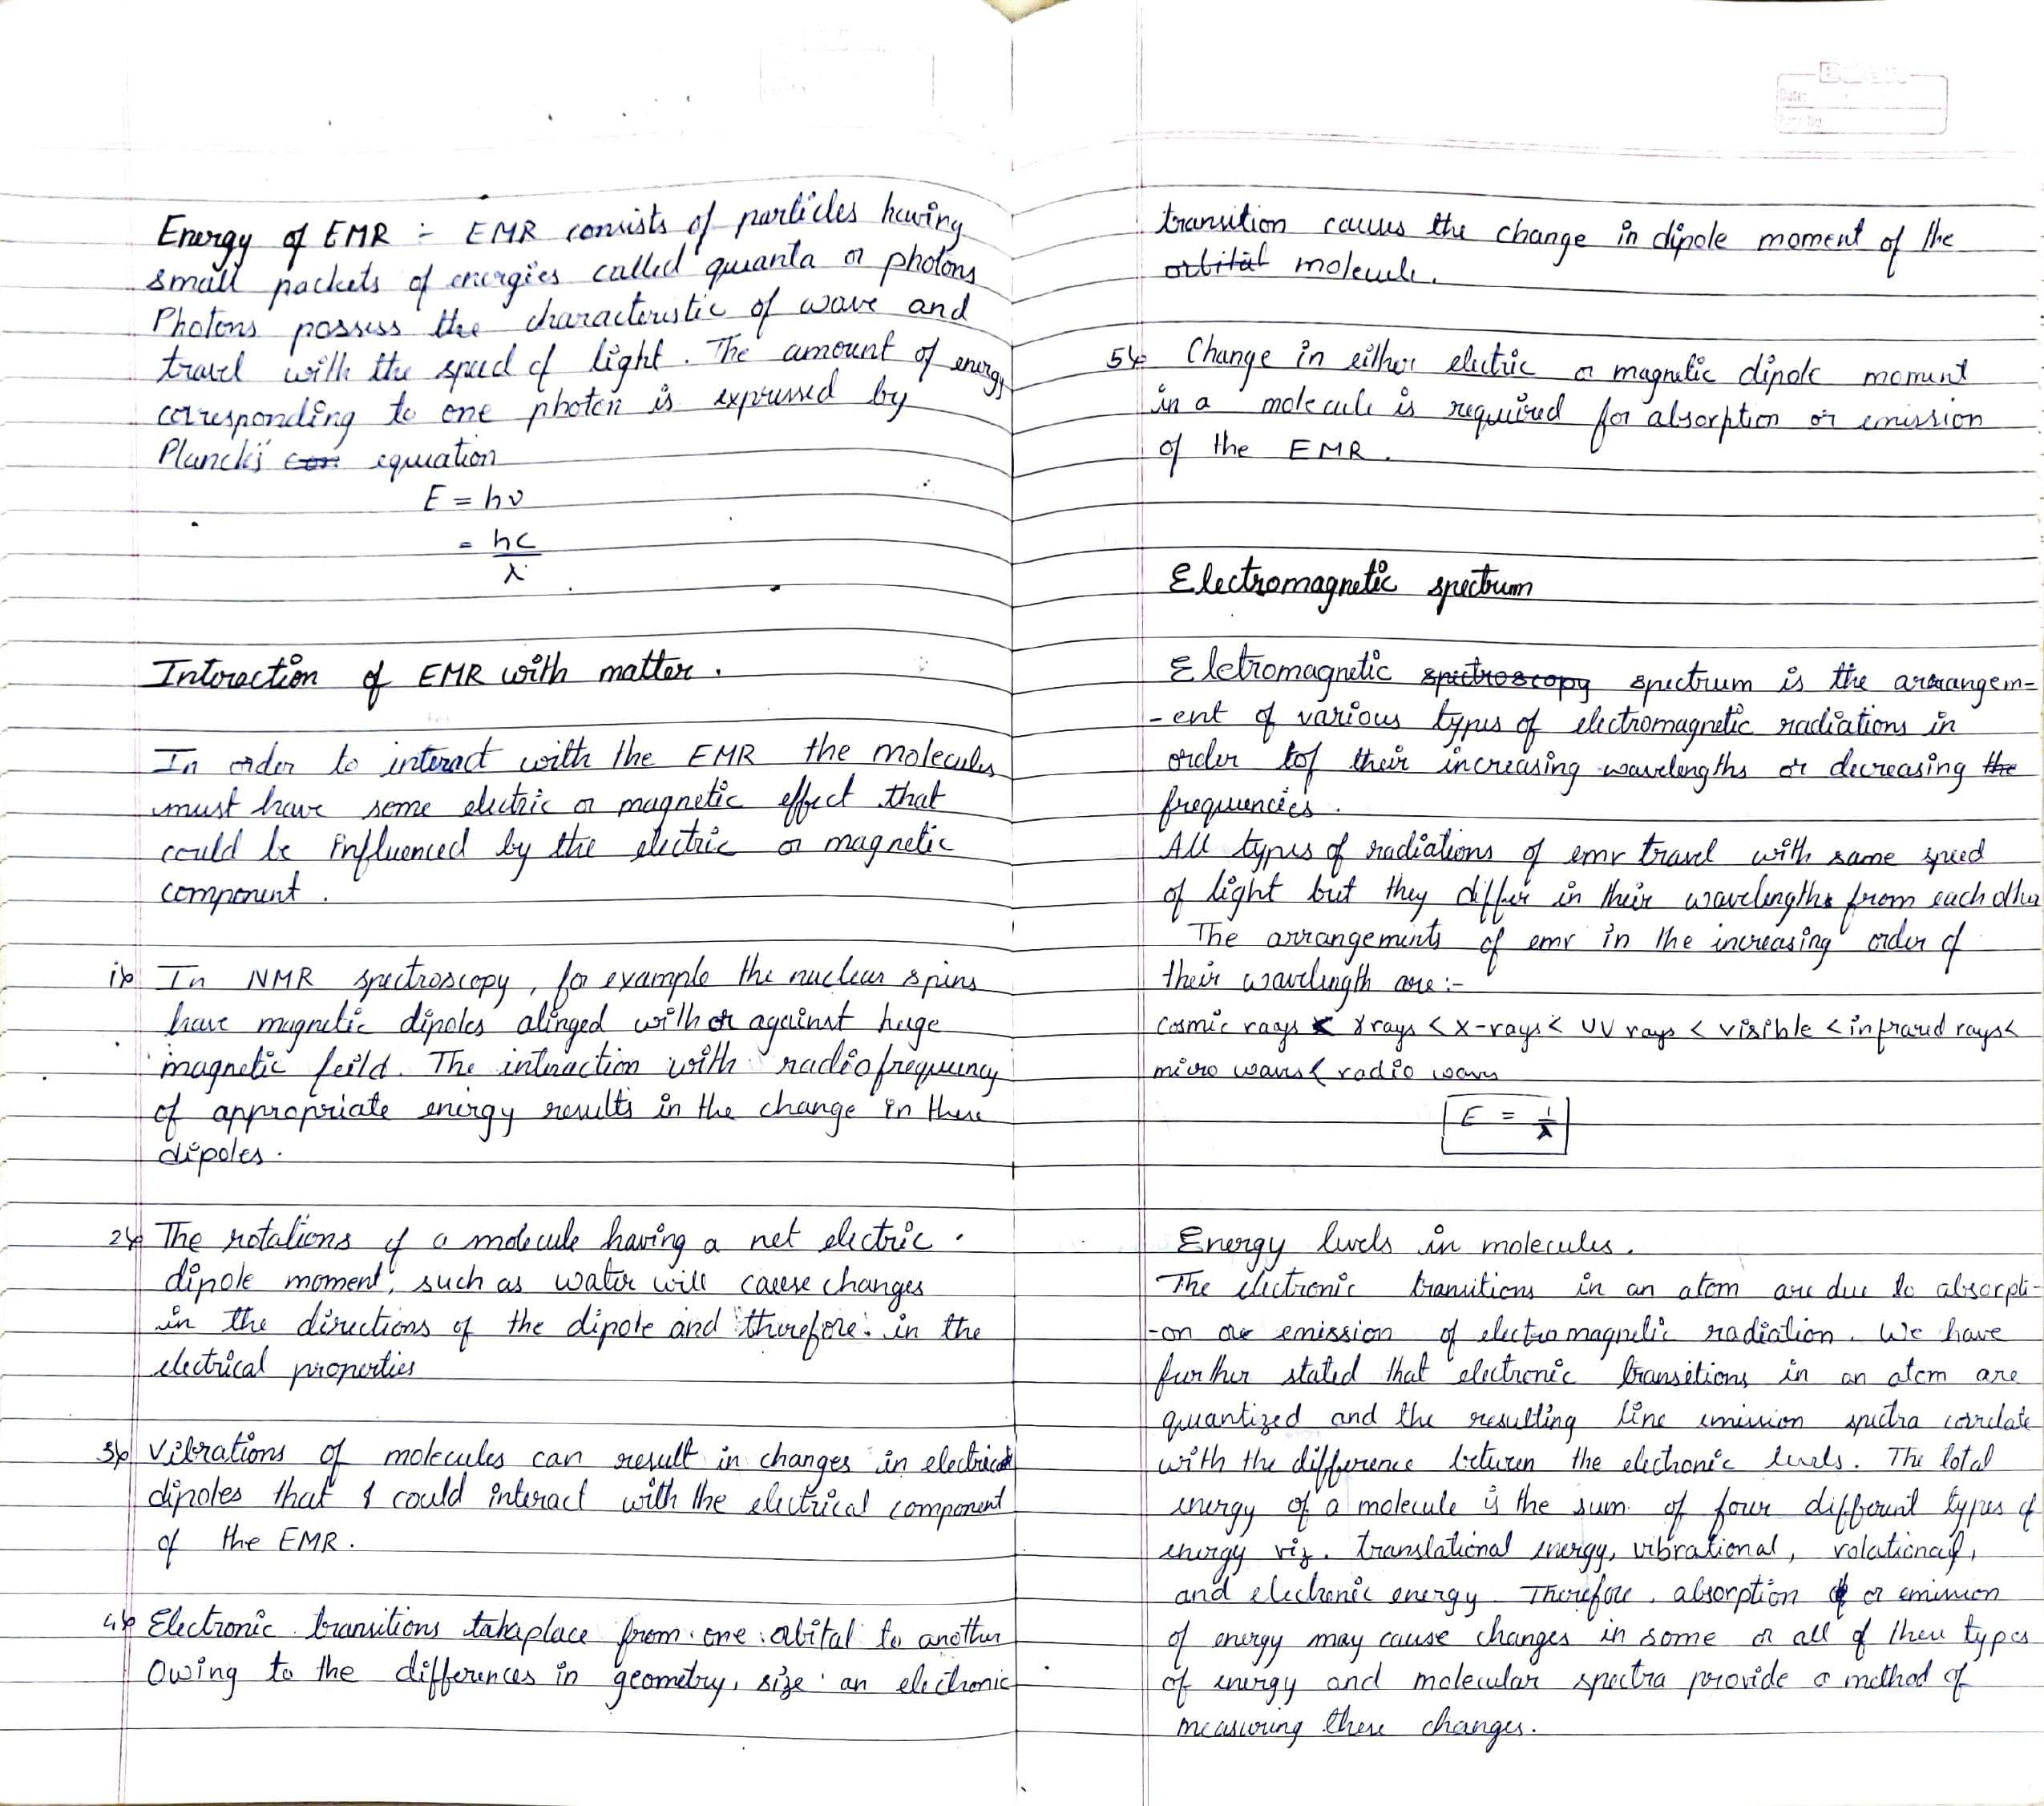 Energy of EMR :- EMR consists of particles having
small packets of energies called quanta or photons
Photons possess the characteristic of wave and
travel with the speed of light. The amount of energy
corresponding to one photon is expressed by
Planck's equation
E = hν
= hc
λ
Interaction of EMR with matter.
In order to interact with the EMR the molecules
must have some electric or magnetic effect that
could be influenced by the electric or magnetic
component.
1) In NMR spectroscopy, for example the nuclear spins
have magnetic dipoles alinged with or against huge
magnetic feild. The interaction with radiofrequency
of appropriate energy results in the change in these
dipoles.
2) The rotations of a molecule having a net electric
dipole moment, such as water will cause changes
in the directions of the dipole and therefore in the
electrical properties
3) Vibrations of molecules can result in changes in electrical
dipoles that could interact with the electrical component
of the EMR.
4) Electronic transitions takeplace from one orbital to another
Owing to the differences in geometry, size an electronic
Date:
Page No.
transition causes the change in dipole moment of the
orbital molecule.
5) Change in either electric or magnetic dipole moment
in a molecule is required for absorption or emission
of the EMR.
Electromagnetic spectrum
Eletromagnetic spectroscopy spectrum is the arrangem-
-ent of various types of electromagnetic radiations in
order of their increasing wavelengths or decreasing the
frequencies.
All types of radiations of emr travel with same speed
of light but they differ in their wavelengths from each other
The arrangements of emr in the increasing order of
their wavelength are :-
cosmic rays < γ rays < x-rays < UV rays < visible < infrared rays <
micro waves < radio waves
E = 1/λ
Energy levels in molecules.
The electronic transitions in an atom are due to absorpti-
-on or emission of electromagnetic radiation. We have
further stated that electronic transitions in an atom are
quantized and the resulting line emission spectra correlate
with the difference between the electronic levels. The total
energy of a molecule is the sum of four different types of
energy viz. translational energy, vibrational, rotational,
and electronic energy. Therefore, absorption or emission
of energy may cause changes in some or all of these types
of energy and molecular spectra provide a method of
measuring these changes.